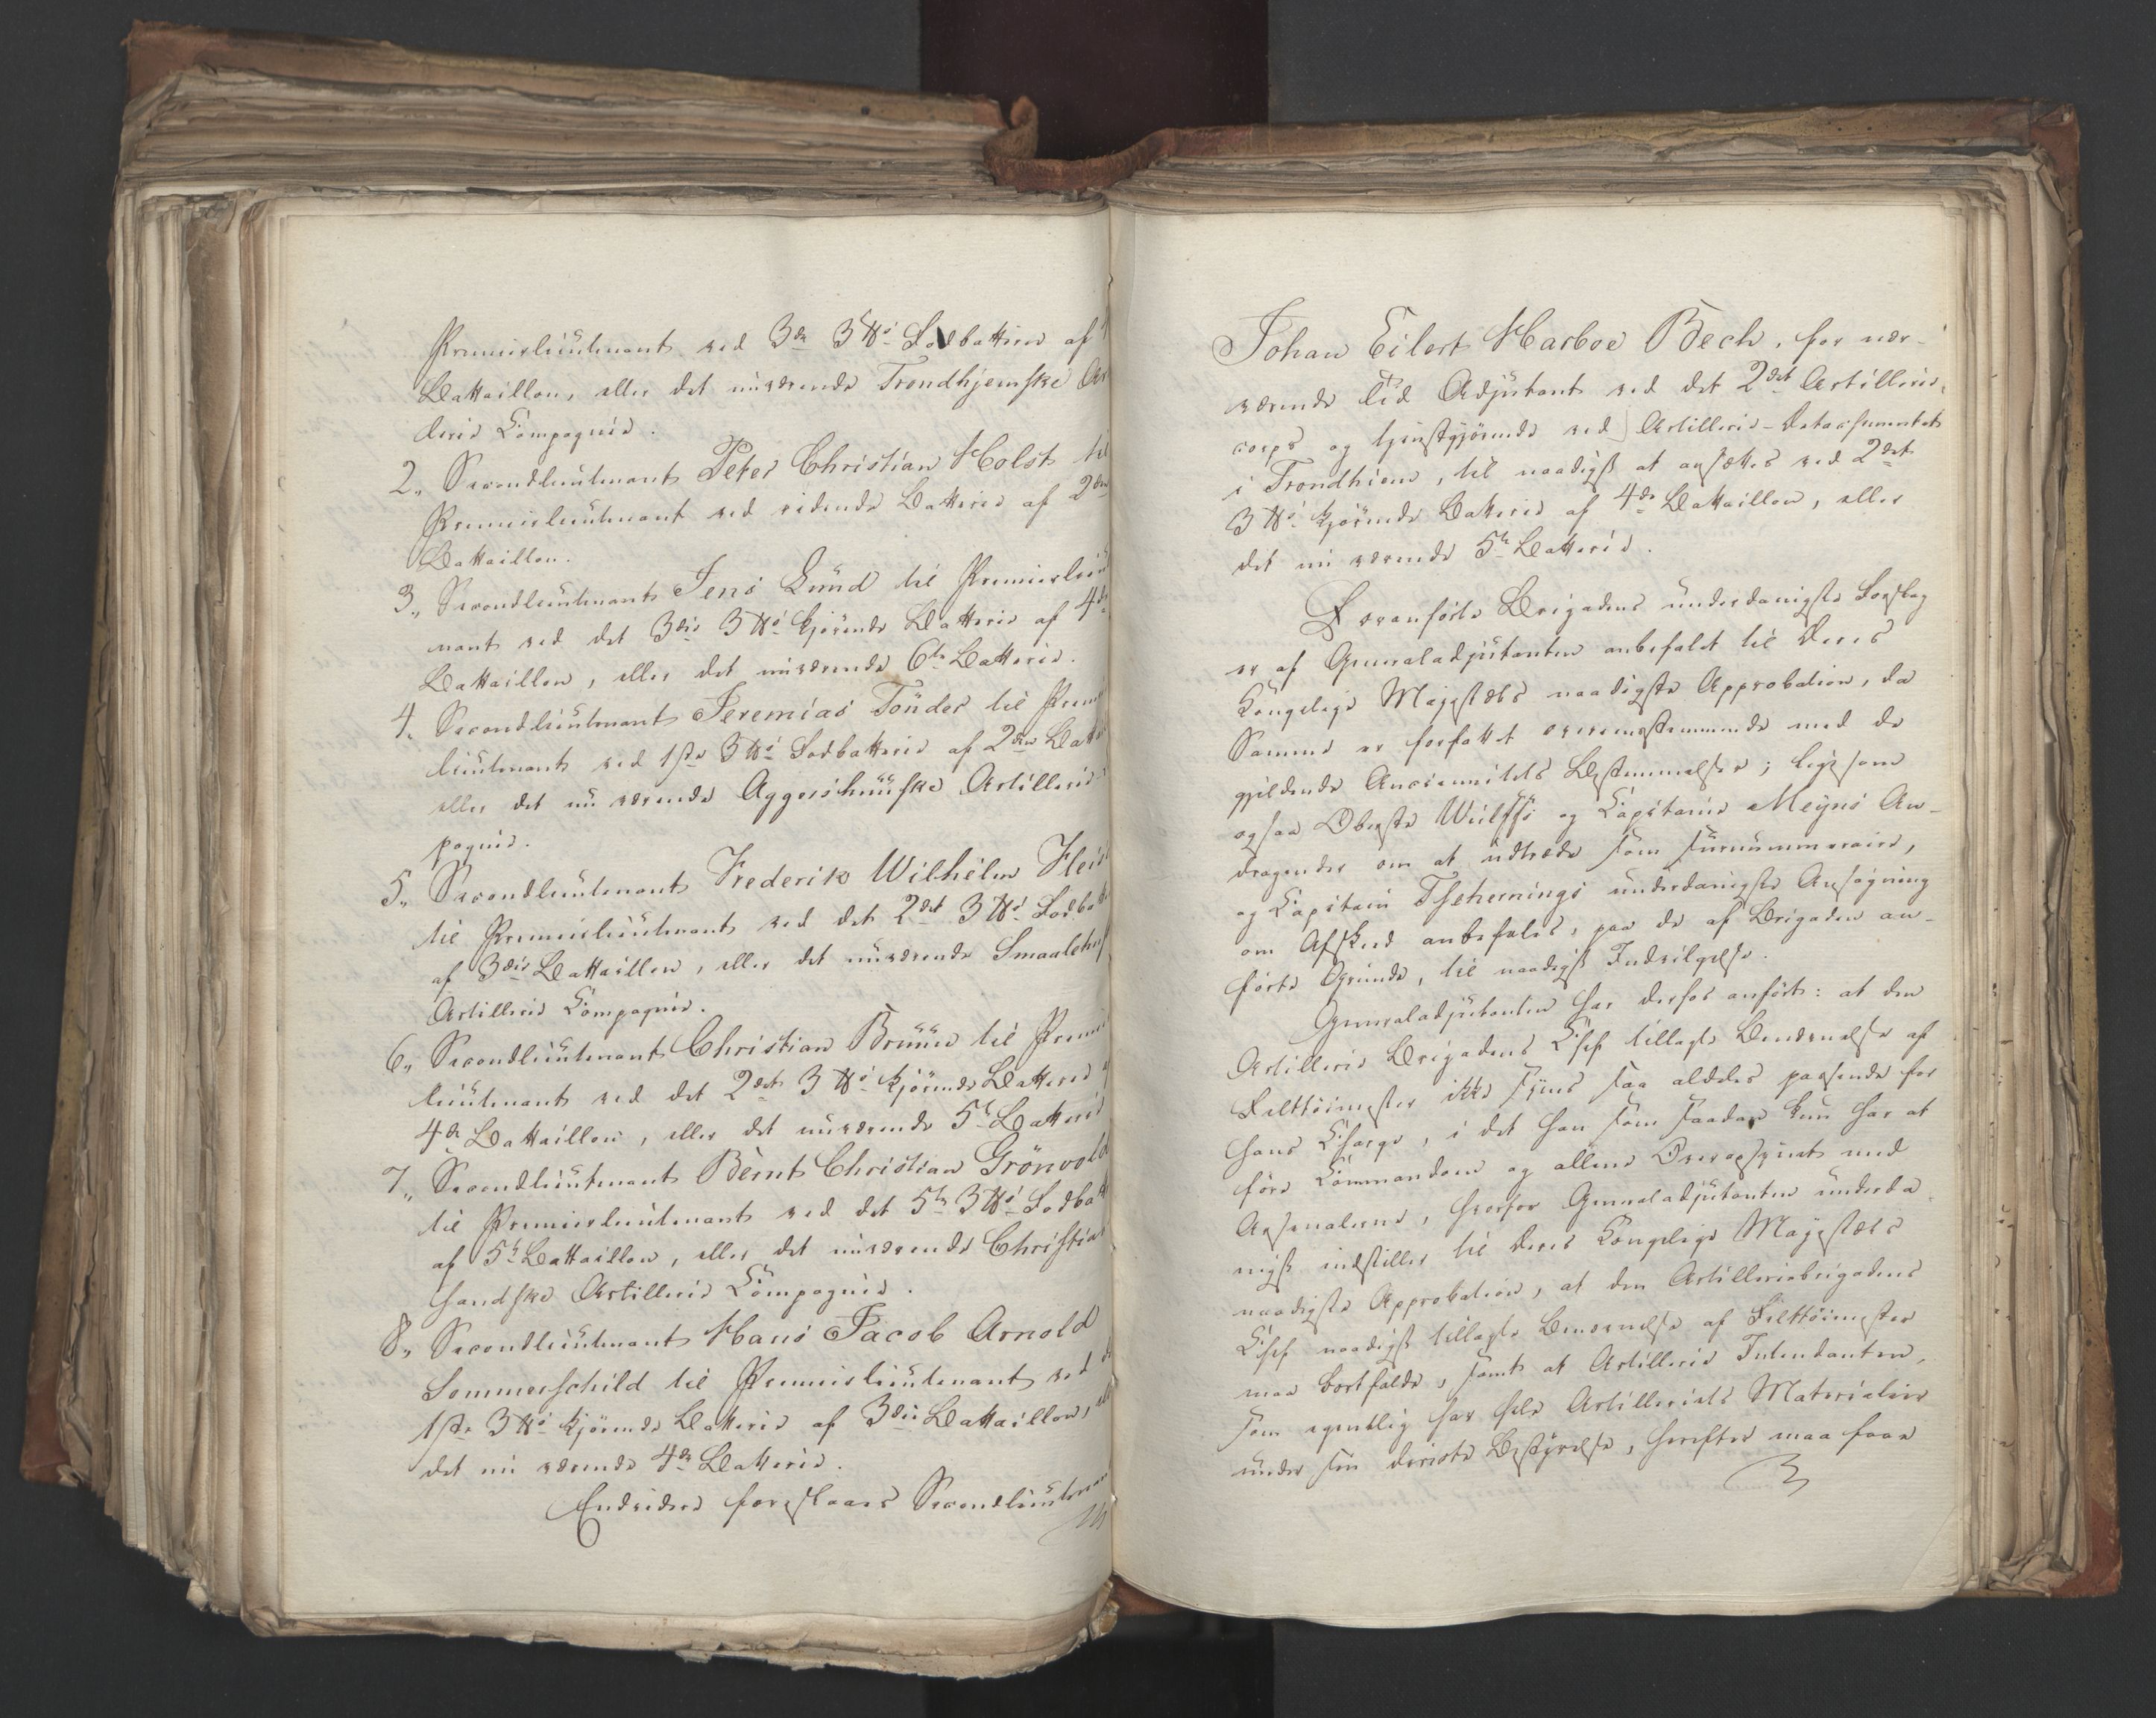 Premierlieutenant ved 3de 3 ℔s Fodbatterie af
Battaillon, eller det nuværende Trondhjemske Ar
tillerie Compagnie.
2, Secondlieutenant Peter Christian Holst til
Premierlieutenant ved ridende Batterie af 2den
Battaillon.
3, Secondlieutenant Jens Lund til Premierlieu
nant ved det 3die 3 ℔s kjörende Batterie af 4de
Battaillon, eller det nuværende 6te Batterie.
4, Secondlieutenant Jeremias Tönder til Premi
lieutenant ved 1ste 3 ℔s Fodbatterie af 2den Batt
eller det nu værende Aggershuuske Artillerie
pagnie.
5, Secondlieutenant Frederik Wilhelm Fleis
til Premierlieutenant ved det 2det 3 ℔s Fodbatt
af 3die Battaillon, eller det nuværende Smaalehns
Artillerie Compagnie.
6, Secondlieutenant Christian Bruun til Premi
lieutenant ved det 2det 3 ℔s kjörende Batterie
4de Battaillon, eller det nuværende 5te Batterie
7, Secondlieutenant Bernt Christian Grönvold
til Premierlieutenant ved det 5te 3 ℔s Fodba
af 5te Battaillon, eller det nuværende Christian
sandske Artillerie Compagnie.
8, Secondlieutenant Hans Jacob Arnold
Sommerschild til Premierlieutenant ved
1ste 3 ℔s kjörende Batterie af 3die Battaillon,
det nu værende 4de Batterie.
Endvidere foreslaaes Secondlieutenan
Johan Eilert Harboe Bech, for nær-
værende tid Adjutant ved det 2det Artillerie
corps og tjenstgjörende ved Artillerie-Detaschementet
i Trondhiem, til naadigst at ansættes ved 2det
3 ℔s kjörende Batterie af 4de Battaillon, eller
det nu værende 5te Batterie.
Foranförte Brigadens underdanigste Forslag
er af Generaladjutanten anbefalet til Deres
Kongelige Majestæts naadigste Approbation, da
Samme er forfattet overeensstemmende med de
gjeldende Anciennitets Bestemmelser; ligesom
ogsaa Oberste Wulffs og Capitaine Meyns An-
dragender om at udtræde som surnummeraire,
og Capitain Tschernings underdanigste Ansögning
om Afskeed anbefales, paa de af Brigaden an-
förte Grunde, til naadigst Indvilgelse.
Generaladjutanten har derhos anfört: at den
Artillerie Brigadens Chef tillagte Benævnelse af
Felttöimester ikke synes saa aldeles passende for
hans Charge, i det han som saadan kun har at
före Commandoen og allene Overopsynet med
Arsenalerne, hvorfor Generaladjutanten underda-
nigst indstiller til Deres Kongelige Majestæts
naadigste Approbation, at den Artilleriebrigadens
Chef naadigst tillagte Benævnelse af Felttöimester
maa bortfalde, samt at Artillerie Intendanten,
som egentlig har hele Artilleriets Materialier
under sin directe Bestyrelse, herefter maa faae